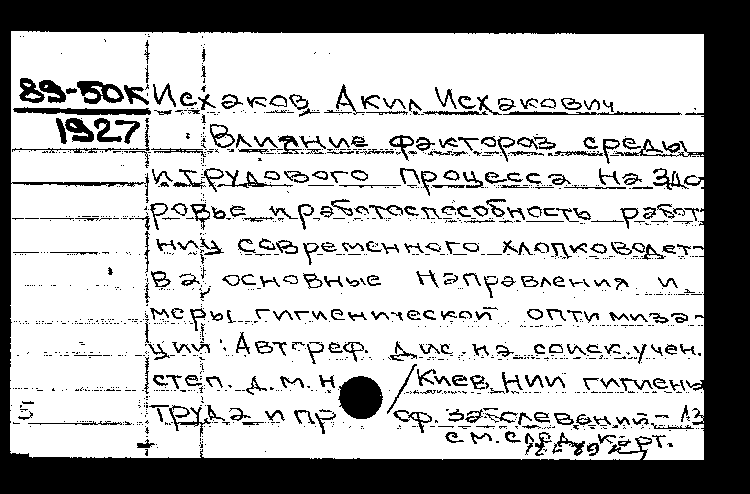 89-50К Исхаков Акил Исхакович
1927 : Влияние факторов среды
и трудового процесса на здо-
ровье и работоспособность работ-
ниц современного хлопководст-
ва, основные направления и
меры гигиенической оптимиза-
ции: Автореф. дис. на соиск. учен.
степ. д. м. н. / Киев. НИИ гигиены
5 труда и проф. заболеваний. -
см. след. карт.